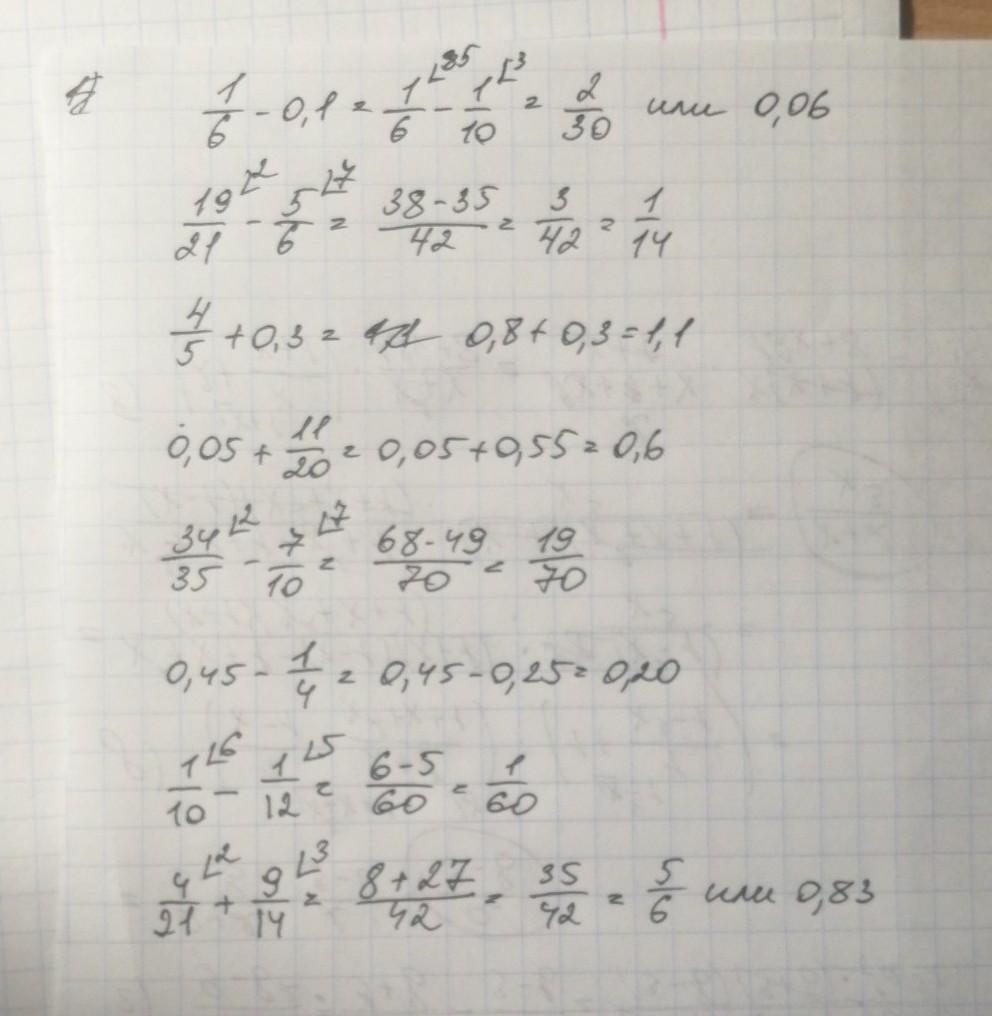 1/6 - 0,1 = 1/6 - 1⌊3/10 = 2/30 или 0,06
19⌊2/21 - 5⌊7/6 = 38-35/42 = 3/42 = 1/14
4/5 + 0,3 = 0,8 + 0,3 = 1,1
0,05 + 11/20 = 0,05 + 0,55 = 0,6
34⌊2/35 - 7⌊7/10 = 68-49/70 = 19/70
0,45 - 1/4 = 0,45 - 0,25 = 0,20
1⌊6/10 - 1⌊5/12 = 6-5/60 = 1/60
4⌊2/21 + 9⌊3/14 = 8+27/42 = 35/42 = 5/6 или 0,83